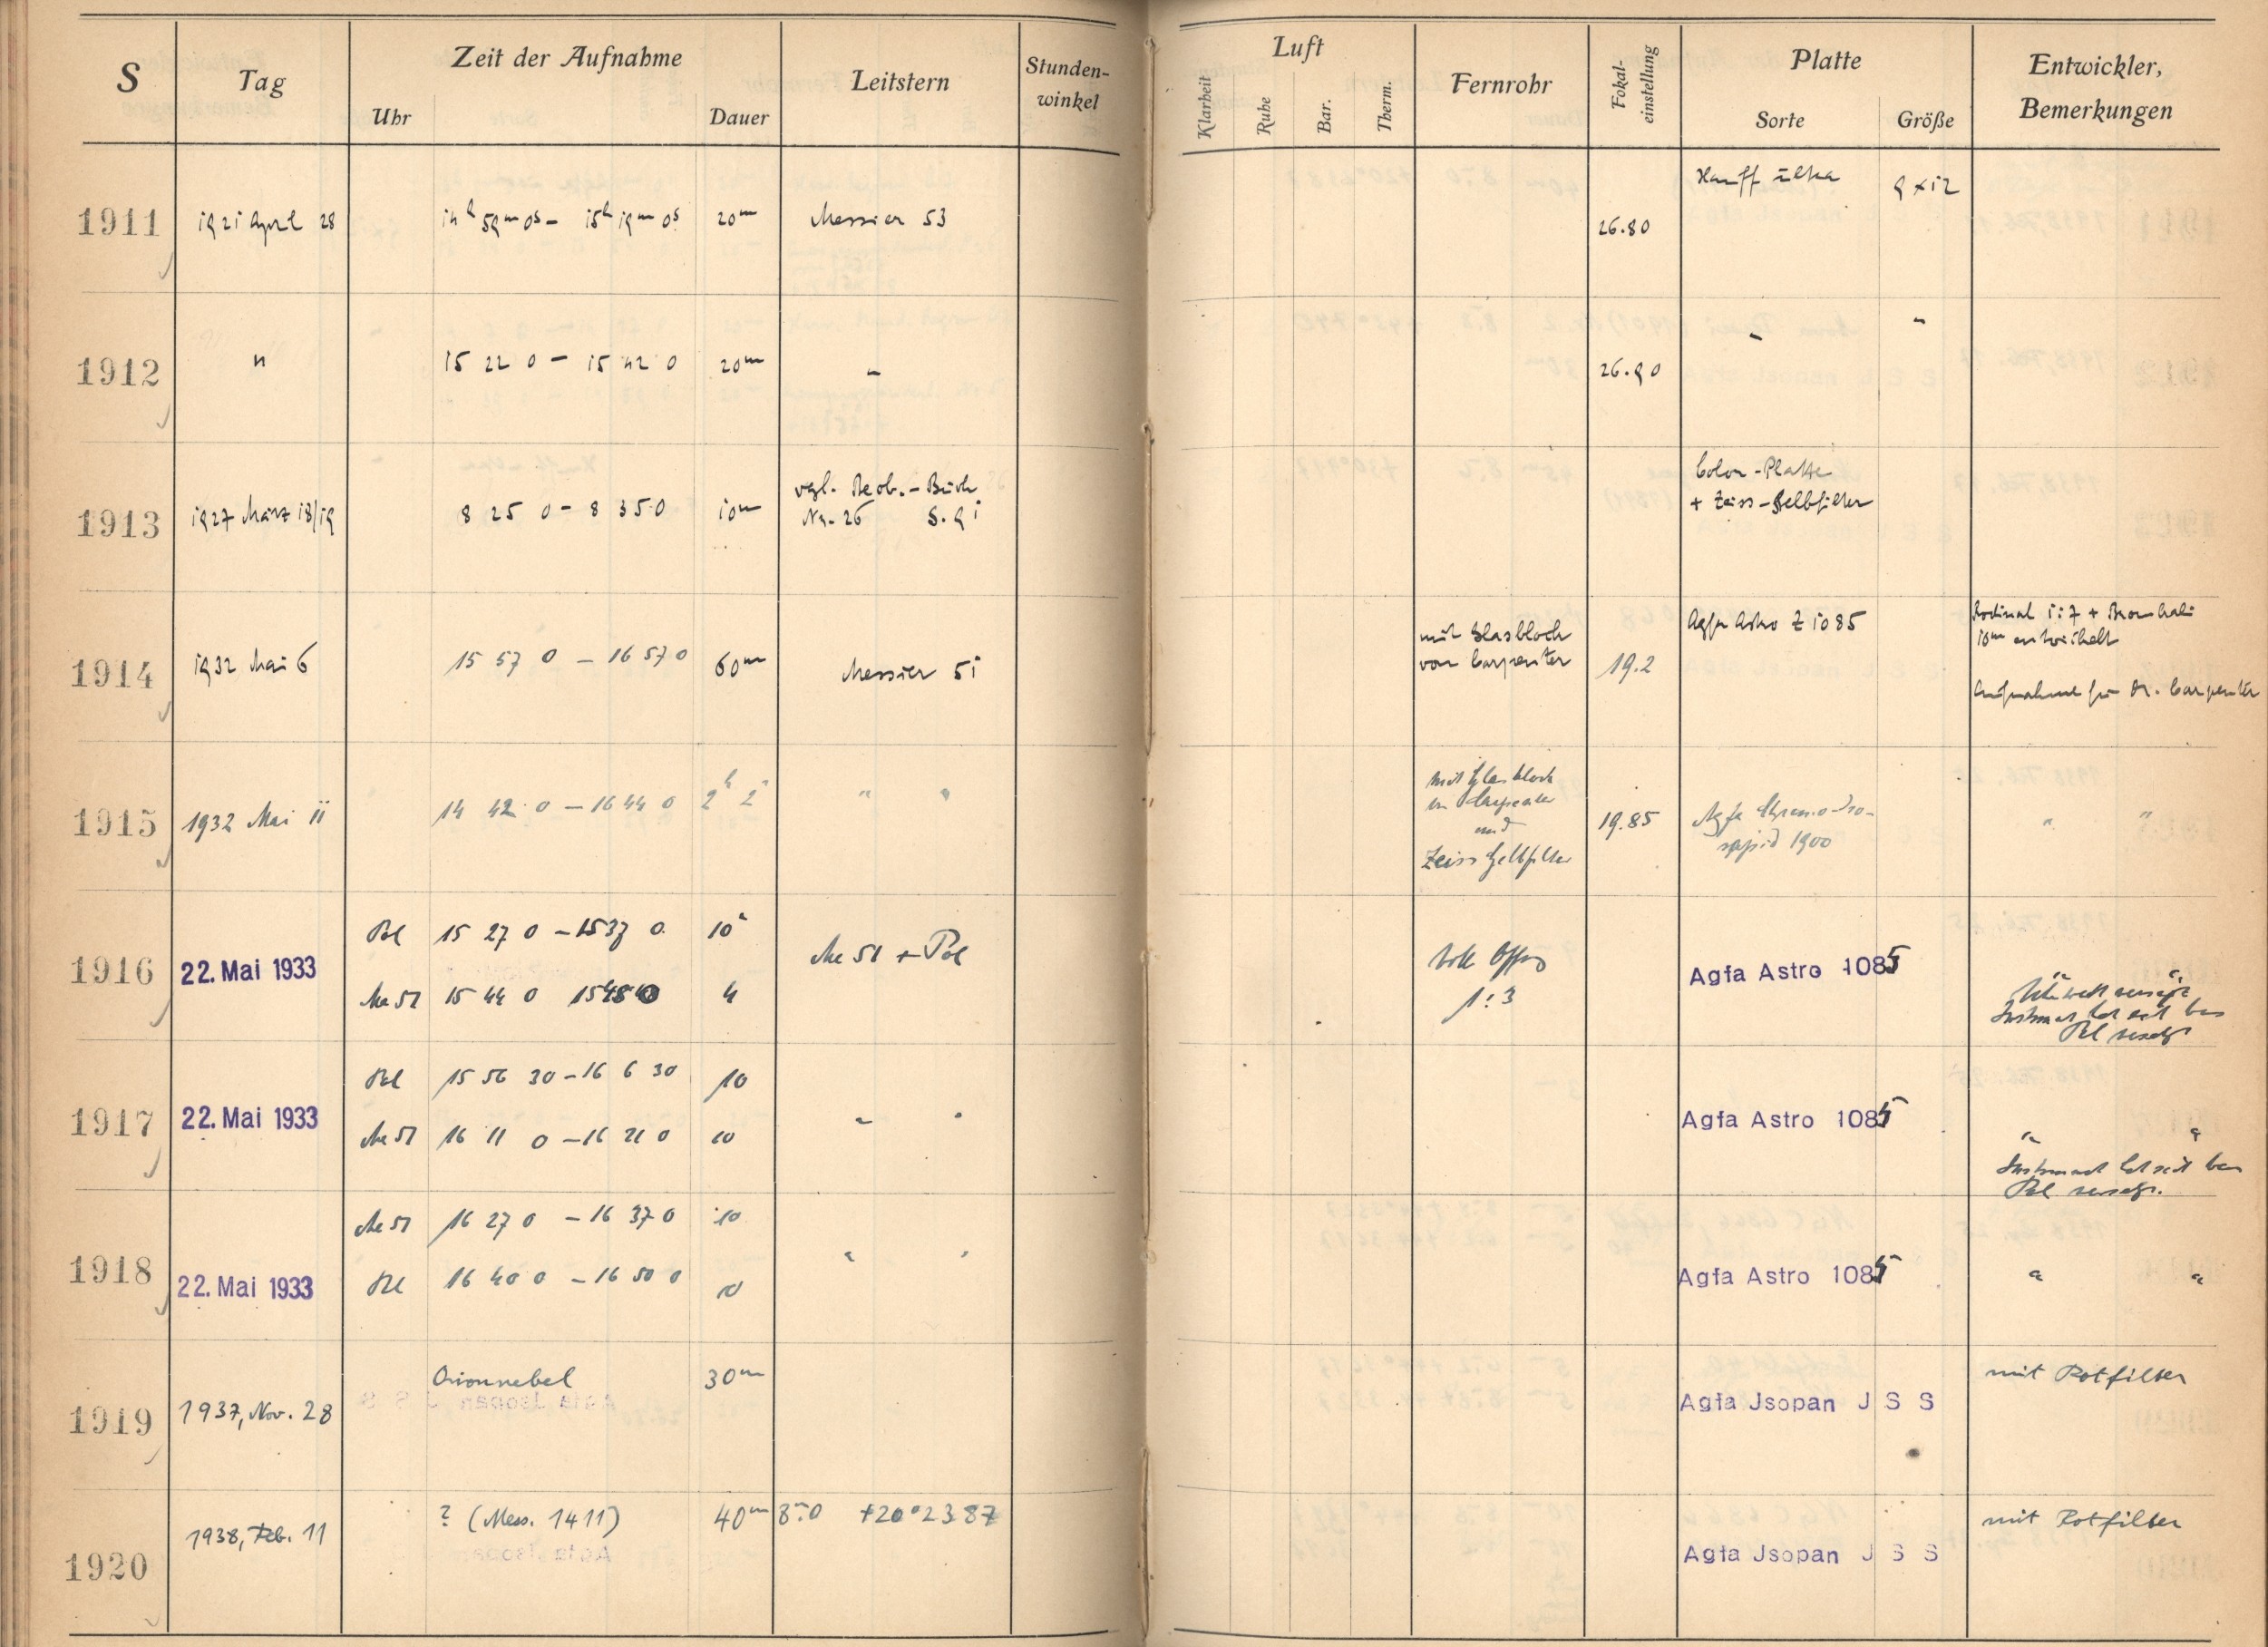 S Tag Zeit der Aufnahme Leitstern Stunden-
winkel
Uhr Dauer
Luft Fernrohr Fokal-
einstellung Platte Entwickler,
Bemerkungen
Klarheit Ruhe Bar. Therm. Sorte Größe
1911 1921 April 28 14h 59m 0s – 15h 19m 0s 20m Messier 53 26.80 Hauff Ultra 9 x 12
1912 " 15 22 0 – 15 42 0 20m " 26.90 " "
1913 1927 März 18/19 8 25 0 – 8 35 0 10m vgl. Beob.-Buch
Nr. 26 S. 91
Color-Platte
+ Zeiss-Gelbfilter
1914 1932 Mai 6 15 57 0 – 16 57 0 60m Messier 51
mit Glasblock
von Carpenter
19.2 Agfa Astro Z 1085
Rodinal 1:7 + Bromkali
10m entwickelt
Aufnahme für Dr. Carpenter
1915 1932 Mai 11 14 42 0 – 16 44 0 2h 2m " "
mit Glasblock
von Carpenter
und
Zeiss Gelbfilter
19.85 Agfa Chromo-Iso-
rapid 1900
" "
1916 22. Mai 1933
Pol 15 27 0 – 15 37 0 10m
Me 51 15 44 0 15 48 0 4
Me 51 + Pol
1:3
Agfa Astro 1085
Pol
1917 22. Mai 1933
Pol 15 56 30 – 16 6 30 10
Me 51 16 11 0 – 16 21 0 10
" "
Agfa Astro 1085
" "
Pol
1918 22. Mai 1933
Me 51 16 27 0 – 16 37 0 10
Pol 16 40 0 – 16 50 0 10
" "
Agfa Astro 1085
" "
1919 1937, Nov. 28 Orionnebel 30m Agfa Jsopan J S S mit Rotfilter
1920 1938, Feb. 11 ? (Mess. 1411) 40m 8m.0 +20°2387 Agfa Jsopan J S S mit Rotfilter